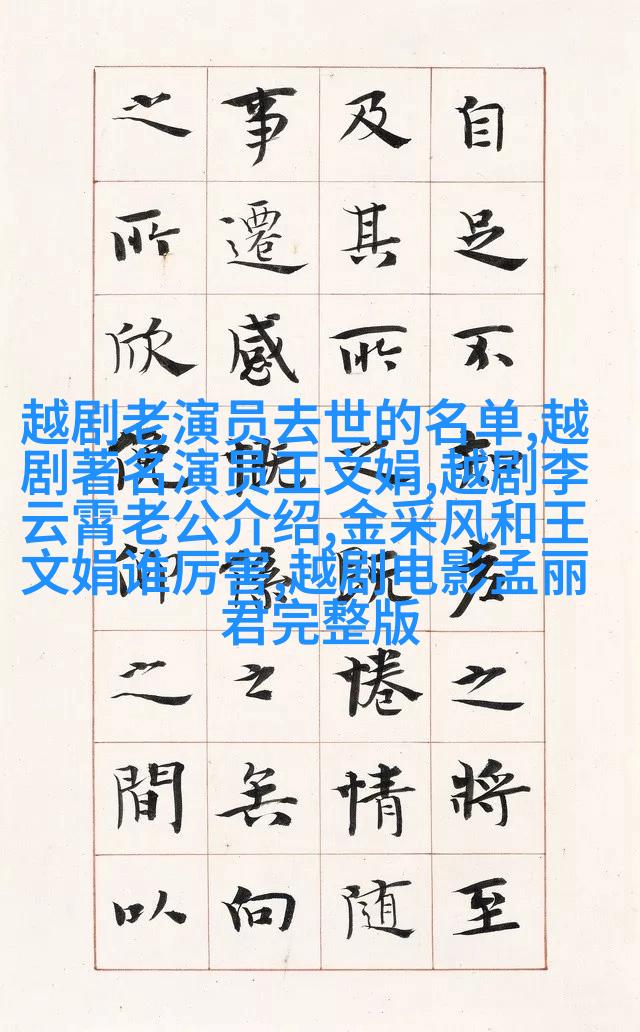 自足不知老之將至
及其所之既惓情隨
事遷感慨係之矣向
之所欣俛仰之間以
越剧老演员去世的名单,越
剧著名演员王文娟,越剧李
云霄老公介绍,金采风和王
文娟谁厉害,越剧电影孟丽
君完整版